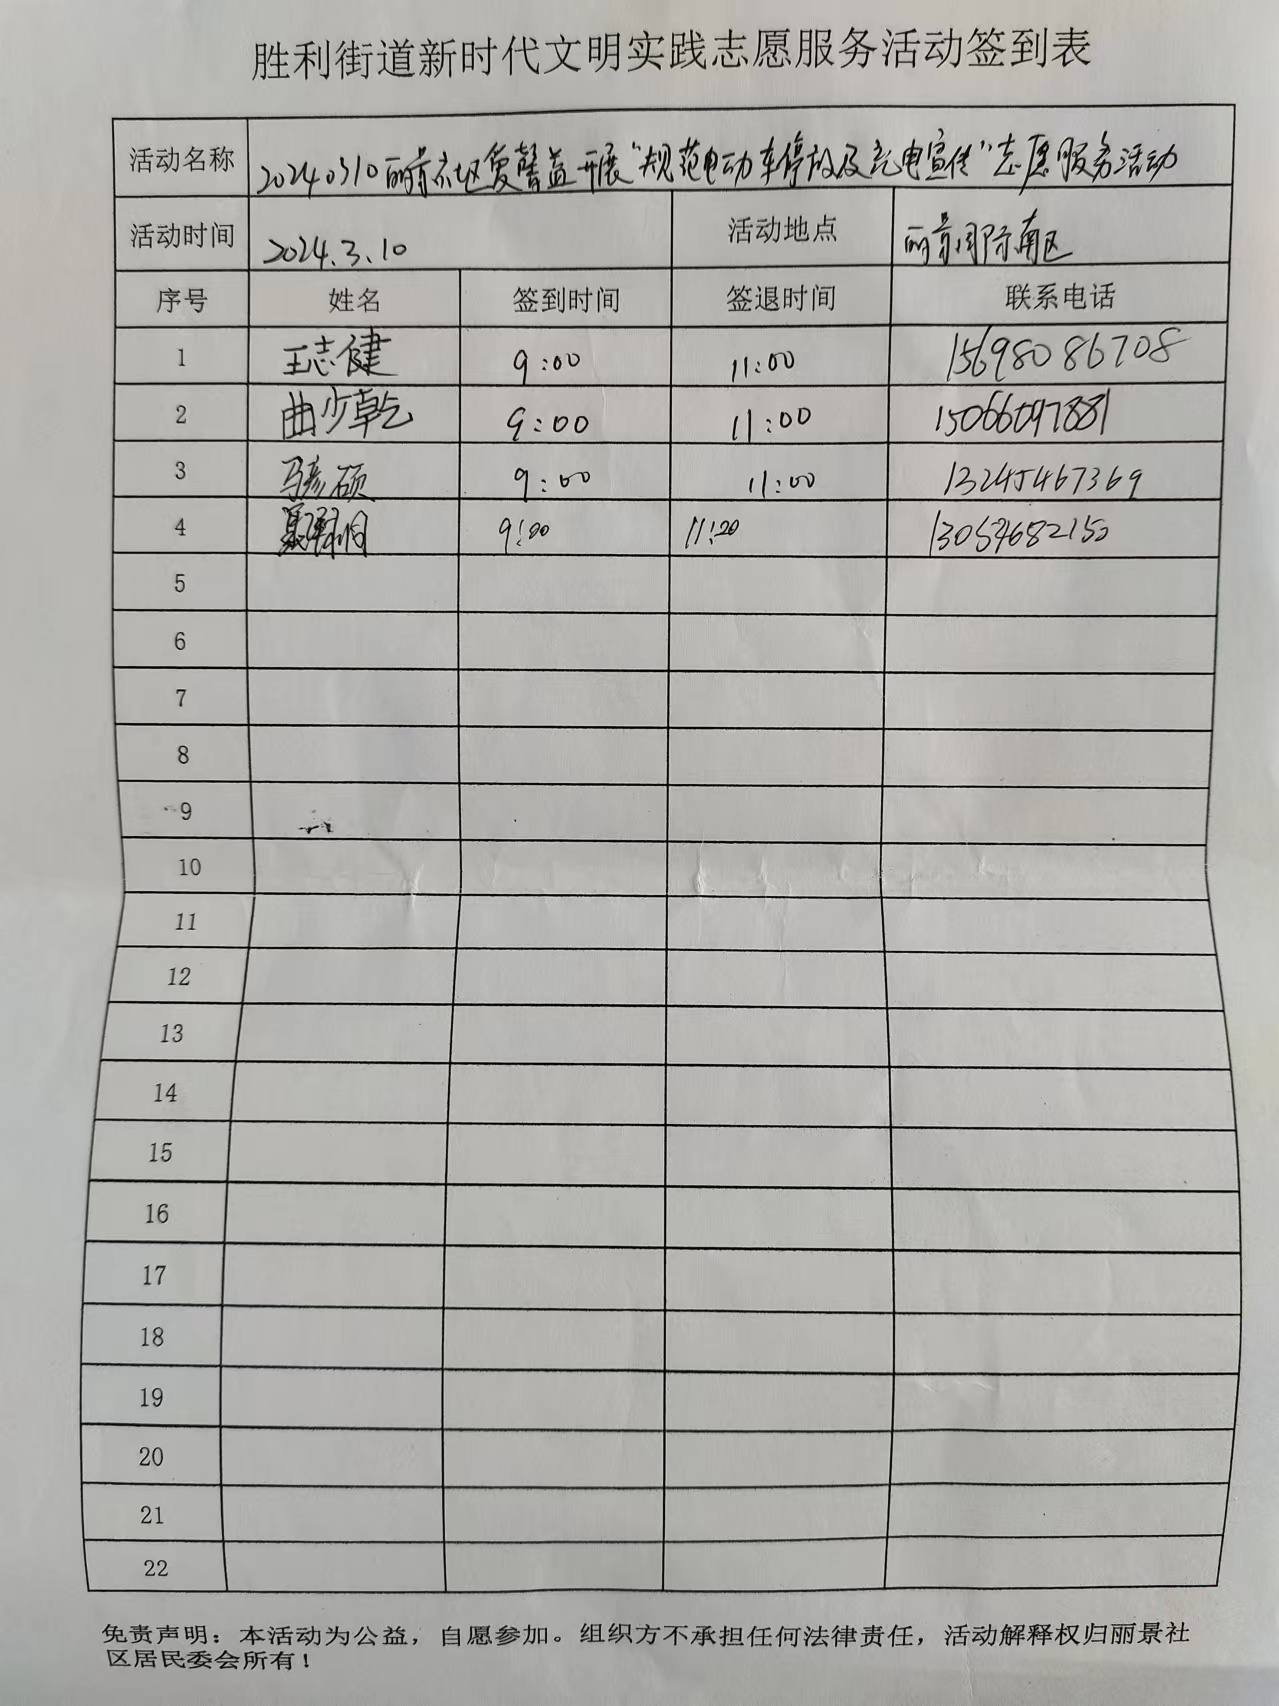 胜利街道新时代文明实践志愿服务活动签到表
活动名称 20240310丽景社区爱馨益开展“规范电动车停放及充电宣传”志愿服务活动
活动时间 2024.3.10 活动地点 丽景国际南区
序号 姓名 签到时间 签退时间 联系电话
1 王志健 9:00 11:00 15698086708
2 曲少乾 9:00 11:00 15066097881
3 马彦硕 9:00 11:00 13245467369
4 9:00 11:20
5
6
7
8
9
10
11
12
13
14
15
16
17
18
19
20
21
22
免责声明：本活动为公益，自愿参加。组织方不承担任何法律责任，活动解释权归丽景社
区居民委会所有！